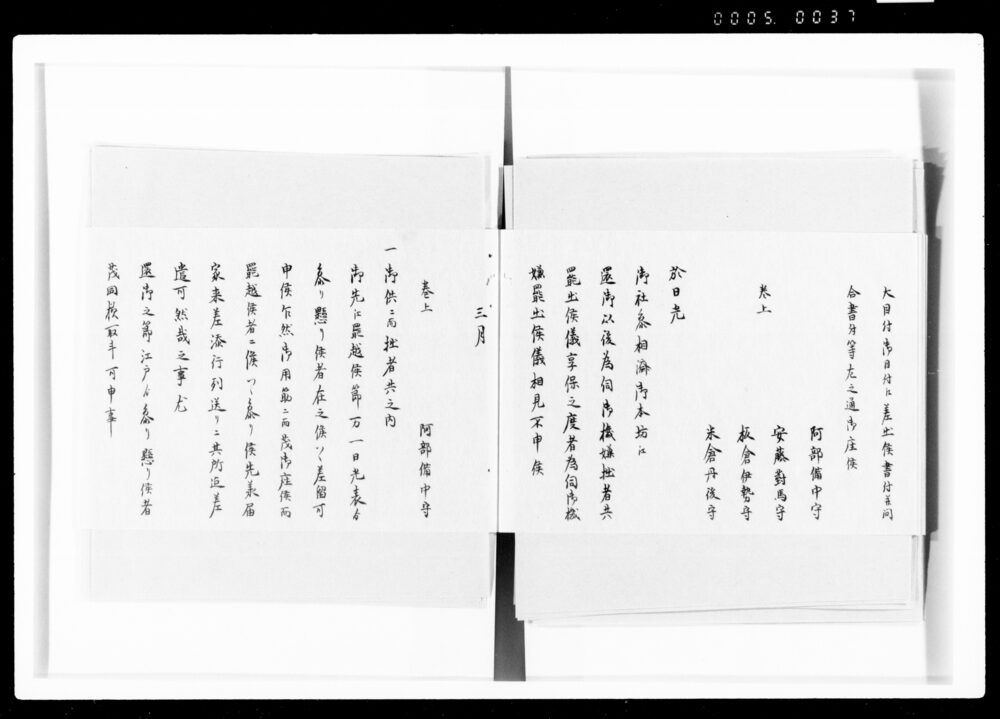 0005.0037
大目付御目付江差出候書付并問
合書付等左之通御座候
阿部備中守
安藤對馬守
巻上
板倉伊勢守
米倉丹後守
於日光
御社参相濟御本坊江
還御以後為伺御機嫌拙者共
罷出候儀享保之度者為伺御機
嫌罷出候儀相見不申候
三月
巻上
阿部備中守
一御供ニ而拙者共之内
御先江罷越候節万一日光表ゟ
参り懸り候者在之候ハヽ差留可
申候乍然御用筋ニ而茂御座候而
罷越候者ニ候ハヽ参り候先義届
家来差添行列送りニ其所迄差
遣可然哉之事尤
還御之節江戸ゟ参り懸り候者
茂同様取斗可申事